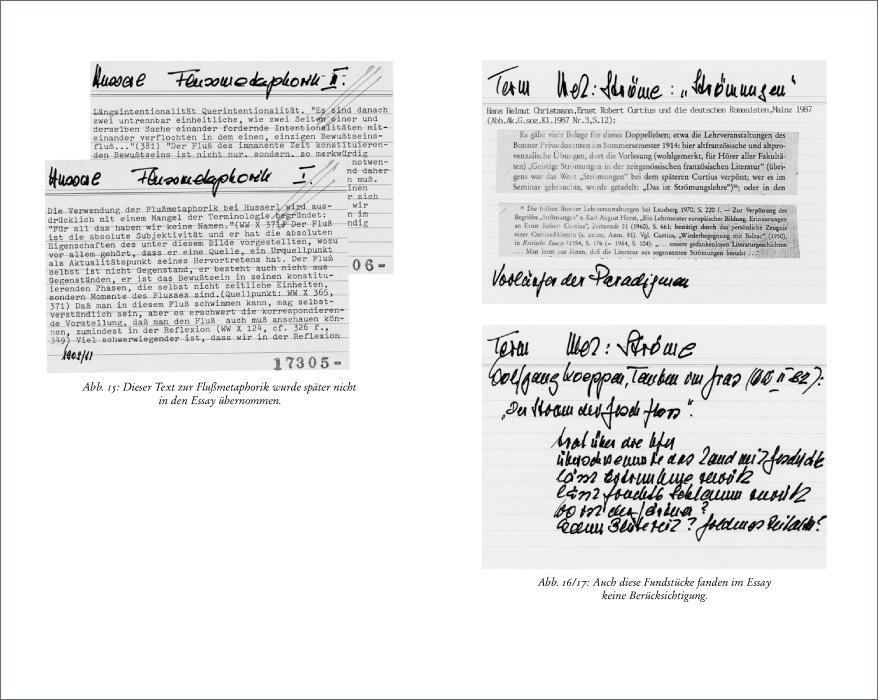 Husserl Flussmetaphorik II.
Längsintentionalität Querintentionalität. "Es sind danach
zwei untrennbar einheitliche, wie zwei Seiten einer und
derselben Sache einander fordernde Intentionalitäten mit-
einander verflochten in dem einen, einzigen Bewußtseins-
fluß..."(381) "Der Fluß des immanente Zeit konstituieren-
den Bewußtseins ist nicht nur, sondern, so merkwürdig
notwen-
nd daher
n muß.
inen
r sich
wir
n im
ndig
06-
Husserl Flussmetaphorik I.
Die Verwendung der Flußmetaphorik bei Husserl wird aus-
drücklich mit einem Mangel der Terminologie begründet:
"Für all das haben wir keine Namen."(WW X 371) Der Fluß
ist die absolute Subjektivität und er hat die absoluten
Eigenschaften des unter diesem Bilde vorgestellten, wozu
vor allem gehört, daß er eine Quelle, ein Urquellpunkt
als Aktualitätspunkt seines Hervortretens hat. Der Fluß
selbst ist nicht Gegenstand, er besteht auch nicht aus
Gegenständen, er ist das Bewußtsein in seinen konstitu-
ierenden Phasen, die selbst nicht zeitliche Einheiten,
sondern Momente des Flusses sind.(Quellpunkt: WW X 365,
371) Daß man in diesem Fluß schwimmen kann, mag selbst-
verständlich sein, aber es erschwert die korrespondieren-
de Vorstellung, daß man den Fluß auch muß anschauen kön-
nen, zumindest in der Reflexion (WW X 124, cf. 326 f.,
349) Viel schwerwiegender ist, dass wir in der Reflexion
17305-
Abb. 15: Dieser Text zur Flußmetaphorik wurde später nicht
in den Essay übernommen.
Term Met: Ströme: „Strömungen"
Hans Helmut Christmann,Ernst Robert Curtius und die deutschen Romanisten,Mainz 1987
(Abh.Ak.G.soz.Kl.1987 Nr.3,S.12):
Es gäbe viele Belege für dieses Doppelleben; etwa die Lehrveranstaltungen des
Bonner Privatdozenten im Sommersemester 1914: hier altfranzösische und altpro-
venzalische Übungen, dort die Vorlesung (wohlgemerkt, für Hörer aller Fakultä-
ten) „Geistige Strömungen in der zeitgenössischen französischen Literatur" (übri-
gens war das Wort "Strömungen" bei dem späteren Curtius verpönt; wer es im
Seminar gebrauchte, wurde getadelt: „Das ist Strömungslehre")²⁶; oder in den
²⁶ Die frühen Bonner Lehrveranstaltungen bei Lausberg 1970, S. 220 f. — Zur Verpönung des
Begriffes „Strömungen" s. Karl August Horst, „Ein Lehrmeister europäischer Bildung. Erinnerungen
an Ernst Robert Curtius", Zeitwende 31 (1960), S. 661; bestätigt durch das persönliche Zeugnis
einer Curtius-Hörerin (s. unten, Anm. 81). Vgl. Curtius, „Wiederbegegnung mit Balzac", (1950),
in Kritische Essays ²1954, S. 176 (= 1984, S. 104): „... unsere gedankenlosen Literaturgeschichten
... Man lernt aus ihnen, daß die Literatur aus sogenannten Strömungen besteht ..."
Vorläufer der Paradigmen
Term Met: Ströme
Wolfgang Koeppen, Tauben im Gras (GW II 82):
„Der Strom der Geschichte floss".
trat über die Ufer
überschwemmte das Land mit Geschichte
lässt Ertrunkene zurück
lässt Schlamm zurück
Abb. 16/17: Auch diese Fundstücke fanden im Essay
keine Berücksichtigung.